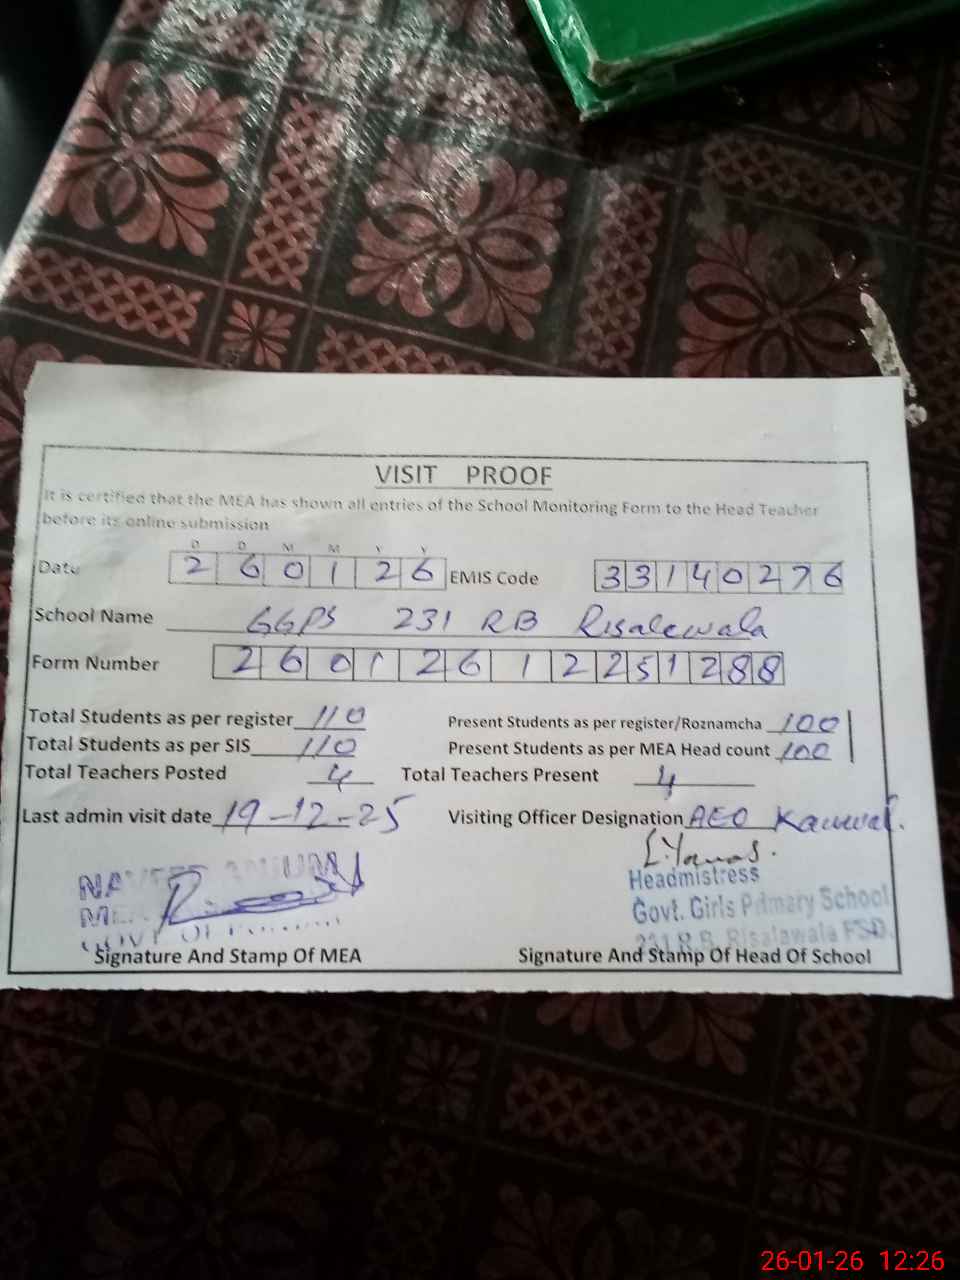 VISIT PROOF
It is certified that the MEA has shown all entries of the School Monitoring Form to the Head Teacher
before its online submission
D D M M Y Y
Date 2 6 0 1 2 6 EMIS Code 3 3 1 4 0 2 7 6
School Name GGPS 231 RB Risalewala
Form Number 2 6 0 1 2 6 1 2 2 5 1 2 8 8
Total Students as per register 110 Present Students as per register/Roznamcha 100
Total Students as per SIS 110 Present Students as per MEA Head count 100
Total Teachers Posted 4 Total Teachers Present 4
Last admin visit date 19-12-25 Visiting Officer Designation AEO Kanwal.
Headmistress
Govt. Girls Primary School
231 R.B. Risalawala FSD.
MEA
Signature And Stamp Of MEA Signature And Stamp Of Head Of School
26-01-26 12:26